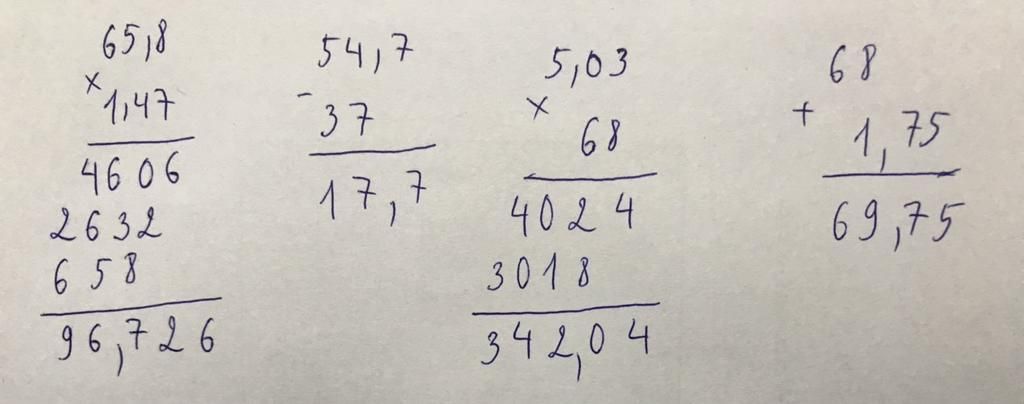 65,8
× 1,47
4606
2632
658
96,726
54,7
- 37
17,7
5,03
× 68
4024
3018
342,04
68
+ 1,75
69,75